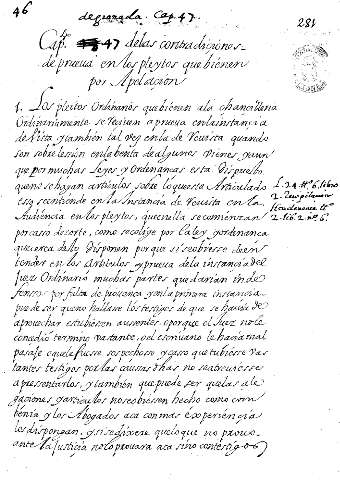 46
de granada. Cap. 47.
281
Cap.º 47 de las contradiciones
de prueva en los pleytos que bienen
por Apelacion
1. Los pleitos Ordinarios que bienen ala chancilleria
Ordinariamente se reciven a prueva en la instancia
de Vista y tambien tal vez en la de Revista quando
son sobre lesion en la benta de algunos vienes, y aun
que por muchas Leyes y Ordenanzas esta Dispuesto
que no se hagan articulos sobre lo que esta Articulado
esto se entiende en la Instancia de Revista con la
Audiencia en los pleytos, que en ella se comienzan
por caso de corte, como se colige por la ley y ordenanca
que cerca dello Disponen porque si se obiesse de en
tender en los Articulos y prueva de la instancia del
Juez Ordinario muchas partes quedarian inde
fensas por falta de provanca, y en la primera instancia
puede ser que no hallasse los testigos de que se havia de
aprovechar estubiesen ausentes, o porque el Juez no le
concedio termino bastante, o el escrivano le haria mal
pasaje o que le fuese sospechoso y caso que tubiesse bas
tantes testigos por las causas dhas no se atreviesse
a presentarlos, y tambien que puede ser que las ale
gaciones y articulos no se obiesen hecho como com
benia y los Abogados aca con mas experiencia
los dispongan. y si se dixere que lo que no provo
ante la Justicia no lo provara aca sino con testigos